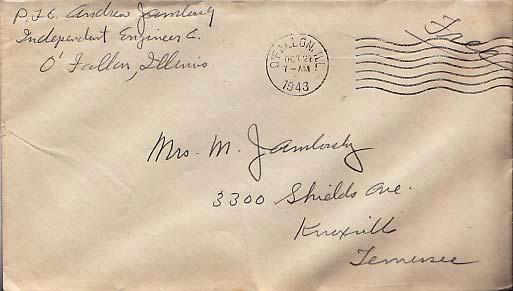 P.F.C. Andrew Jamborsky
Independent Engineer C.
O'Fallon, Illinois
O'FALLON, ILL.
OCT 27
7-AM
1943
Free
Mrs. M. Jamborsky
3300 Shields Ave.
Knoxville
Tennessee